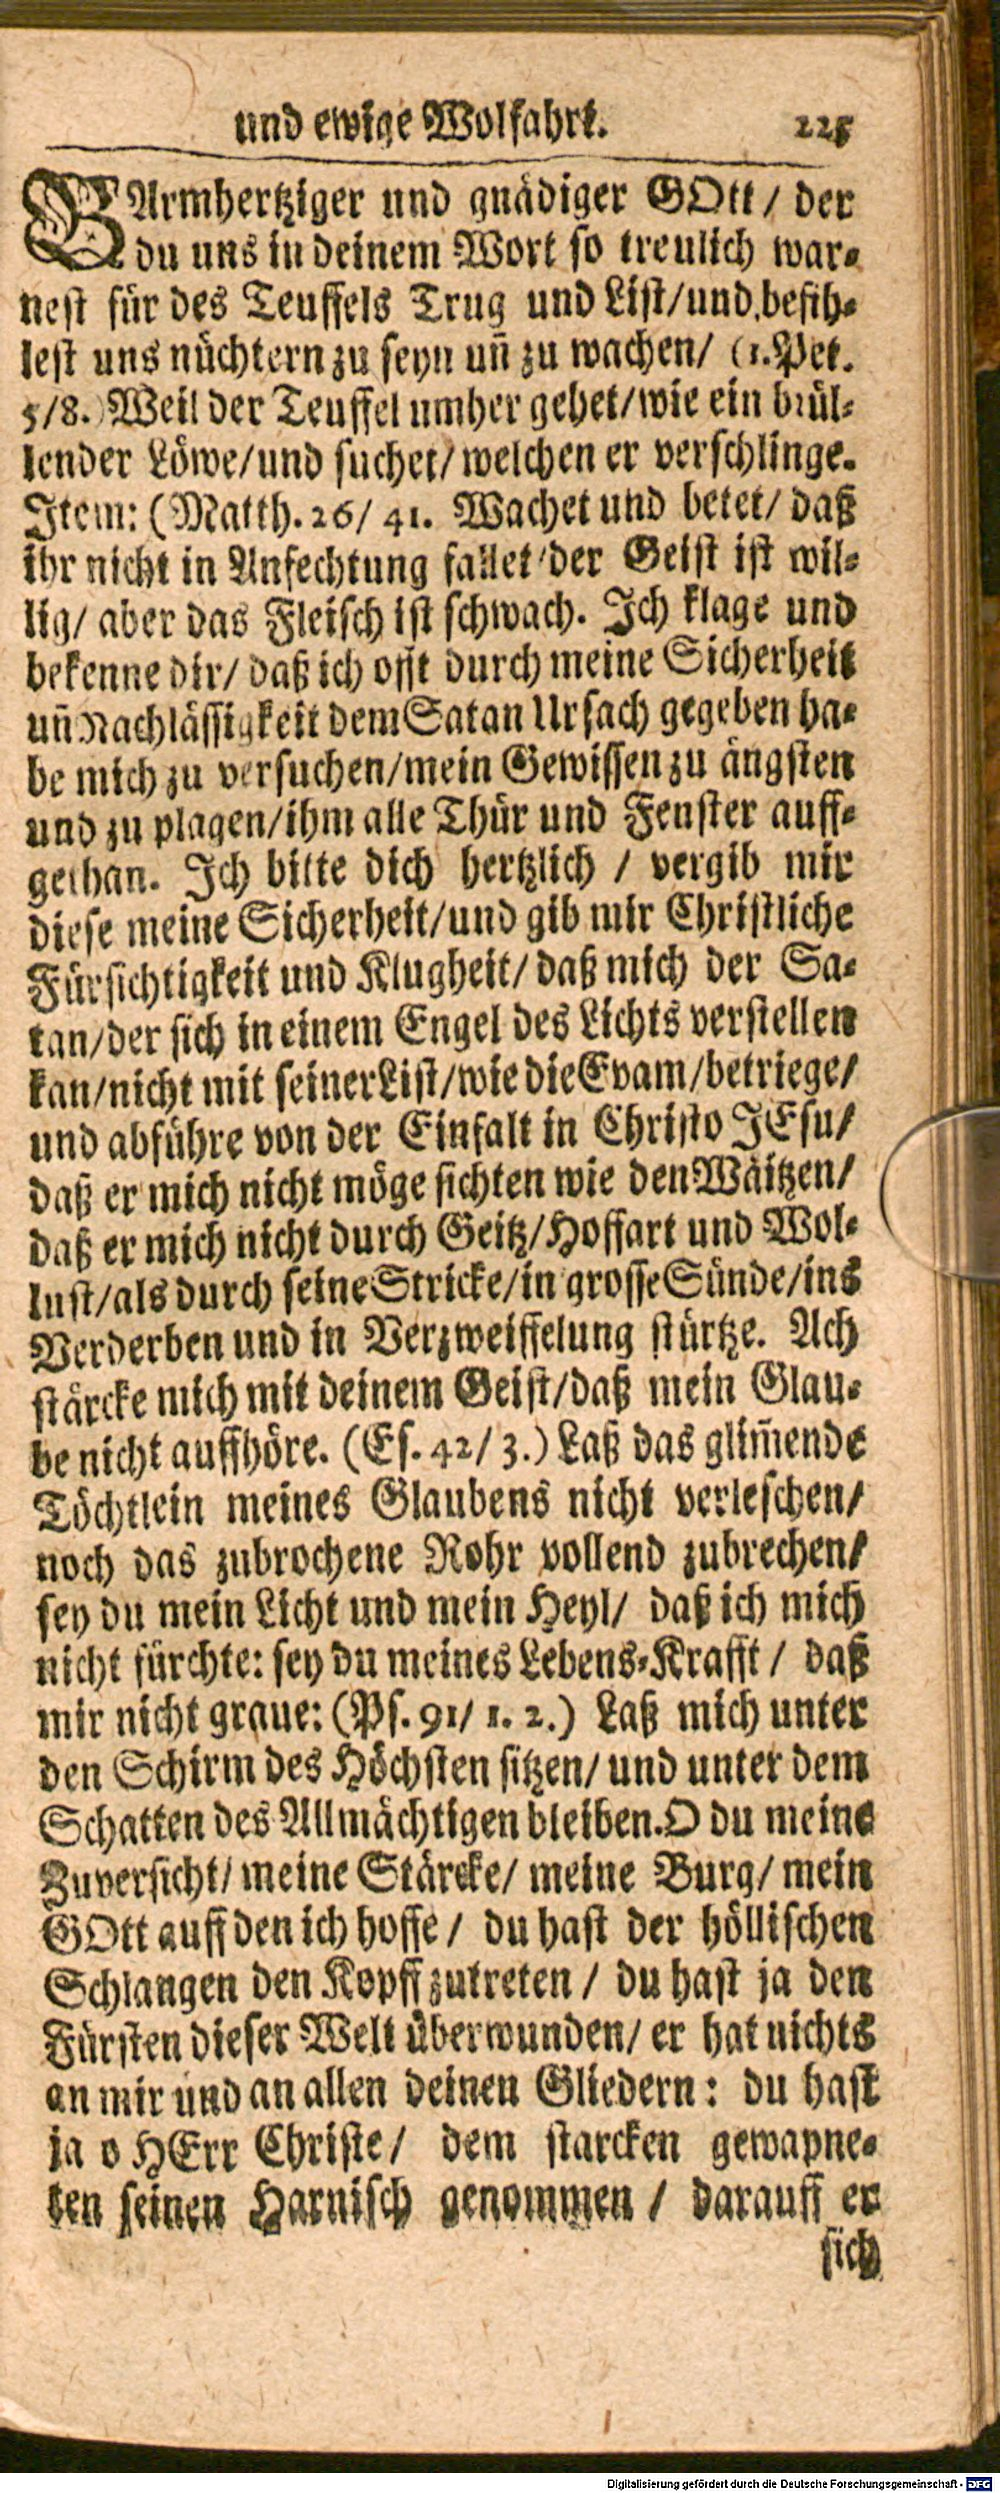 und ewige Wolfahrt. 225
BArmhertziger und gnädiger GOtt / der
du uns in deinem Wort so treulich war⸗
nest für des Teuffels Trug und List/und befih⸗
lest uns nüchtern zu seyn uñ zu wachen/ (1.Pet.
5/8.) Weil der Teuffel umher gehet/wie ein brül⸗
lender Löwe/und suchet/welchen er verschlinge.
Item: (Matth. 26/ 41. Wachet und betet/ daß
ihr nicht in Anfechtung fallet/der Geist ist wil⸗
lig/ aber das Fleisch ist schwach. Ich klage und
bekenne dir/ daß ich offt durch meine Sicherheit
uñ Nachlässigkeit dem Satan Ursach gegeben ha⸗
be mich zu versuchen/mein Gewissen zu ängsten
und zu plagen/ihm alle Thür und Fenster auff⸗
gethan. Ich bitte dich hertzlich / vergib mir
diese meine Sicherheit/und gib mir Christliche
Fürsichtigkeit und Klugheit/ daß mich der Sa⸗
tan/der sich in einem Engel des Lichts verstellen
kan/nicht mit seiner List/wie die Evam/betriege/
und abführe von der Einfalt in Christo JEsu/
daß er mich nicht möge sichten wie den Wäitzen/
daß er mich nicht durch Geitz/Hoffart und Wol⸗
lust/als durch seine Stricke/in grosse Sünde/ins
Verderben und in Verzweiffelung stürtze. Ach
stärcke mich mit deinem Geist/daß mein Glau⸗
be nicht auffhöre. (Es. 42/ 3.) Laß das glim̃ende
Töchtlein meines Glaubens nicht verleschen/
noch das zubrochene Rohr vollend zubrechen/
sey du mein Licht und mein Heyl/ daß ich mich
nicht fürchte: sey du meines Lebens⸗Krafft / daß
mir nicht graue: (Ps. 91/ 1. 2.) Laß mich unter
den Schirm des Höchsten sitzen/ und unter dem
Schatten des Allmächtigen bleiben. O du meine
Zuversicht/ meine Stärcke/ meine Burg/ mein
GOtt auff den ich hoffe / du hast der höllischen
Schlangen den Kopff zutreten / du hast ja den
Fürsten dieser Welt überwunden/ er hat nichts
an mir und an allen deinen Gliedern: du hast
ja o HErr Christe/ dem starcken gewapne⸗
ten seinen Harnisch genommen / darauff er
sich
Digitalisierung gefördert durch die Deutsche Forschungsgemeinschaft - DFG